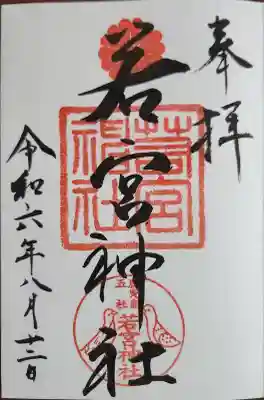 奉拝
若宮神社
令和六年八月廿二日
若宮神社
五社
若宮神社